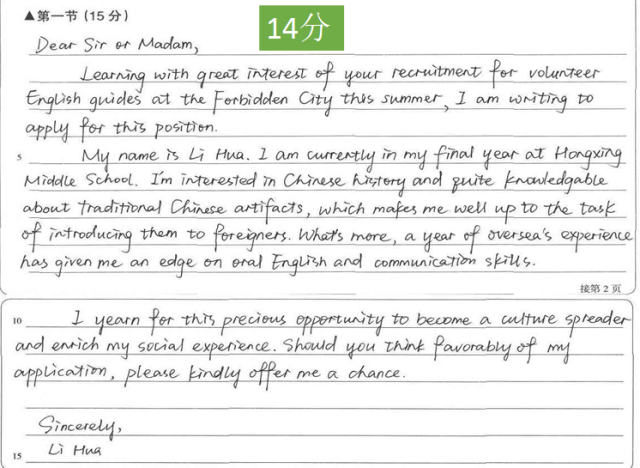 ▲第一节 (15 分)
14分
Dear Sir or Madam,
Learning with great interest of your recruitment for volunteer
English guides at the Forbidden City this summer, I am writing to
apply for this position.
5 My name is Li Hua. I am currently in my final year at Hongxing
Middle School. I'm interested in Chinese history and quite knowledgable
about traditional Chinese artifacts, which makes me well up to the task
of introducing them to foreigners. What's more, a year of oversea's experience
has given me an edge on oral English and communication skills.
接第 2 页
10 I yearn for this precious opportunity to become a culture spreader
and enrich my social experience. Should you think favorably of my
application, please kindly offer me a chance.
Sincerely,
15 Li Hua